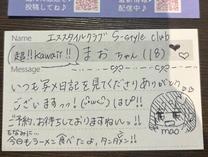 投稿してね♪
情報を
配信中!
Name エススタイルクラブ S-style club
(超!!kawaii!!) まおちゃん(18)♥♡
Message
いつも写メ日記を見てくださりありがとう
ございますっ!(;ᵕ;)(はぴ!!
ご予約、お待ちしておりますねぃっ!!
ちなみに…
今日もラーメン食べたよ。タンタンメン!!
mao